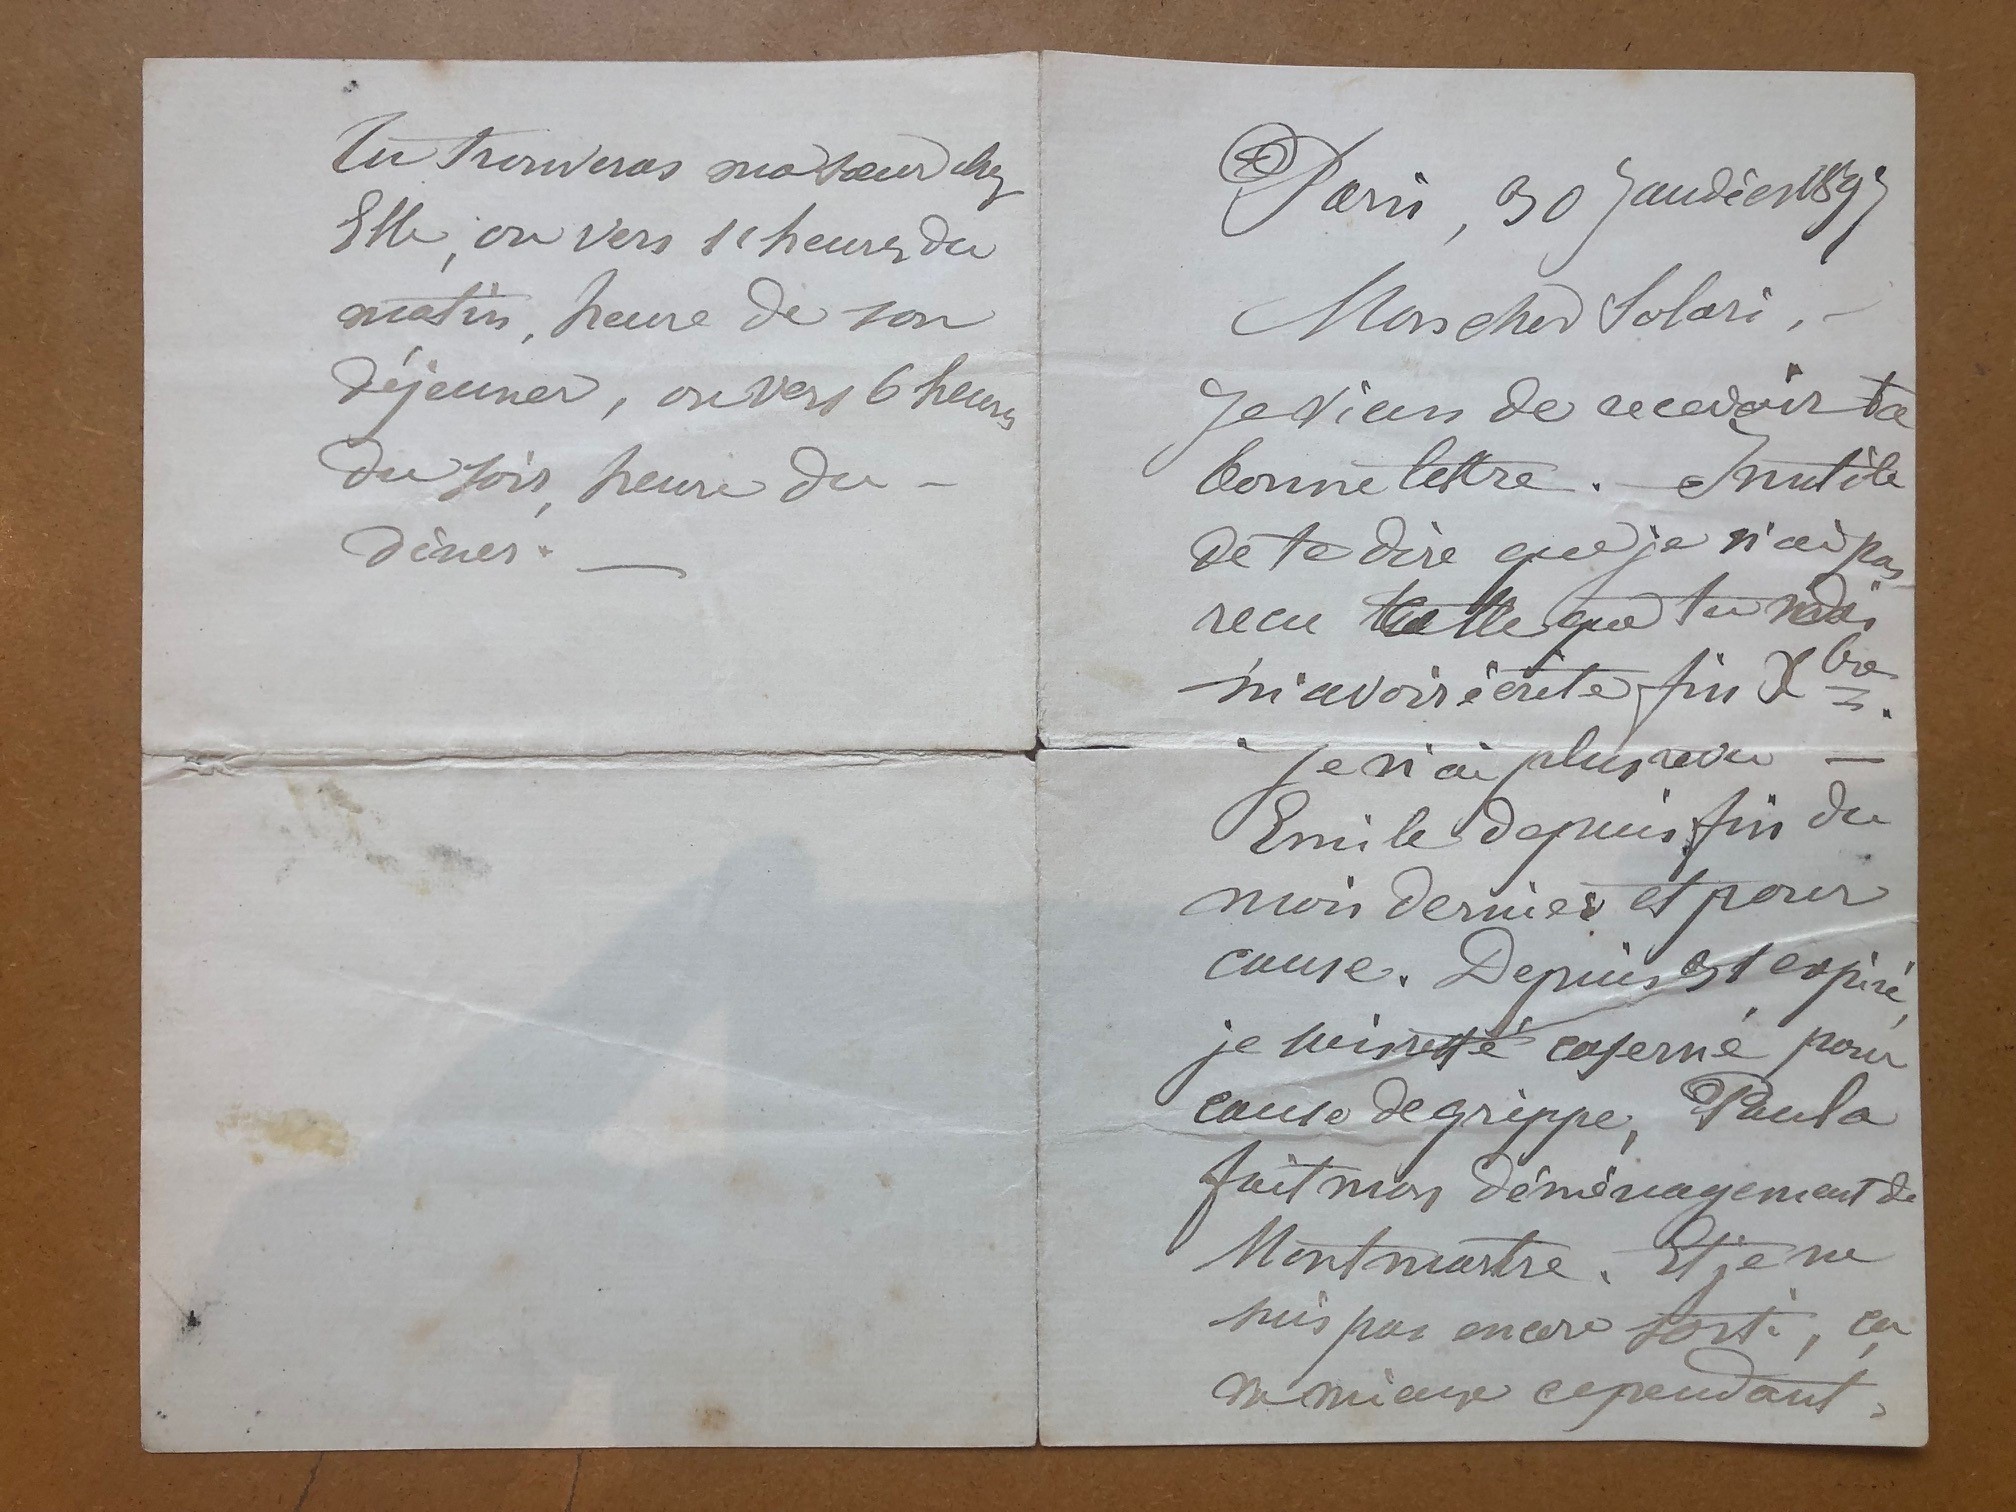 Paris, 30 Janvier 1897
Mon cher Solari, -
Je viens de recevoir ta
bonne lettre. - Inutile
de te dire que je n'ai pas
recu celle que tu
m'avoir écrite fin Xbre.
Je n'ai plus revu —
Emile depuis fin du
mois dernier et pour
cause. Depuis 31 expiré,
je suis resté caserné pour
cause de grippe, Paul a
fait mon déménagement de
Montmartre. Et je ne
suis pas encore sorti, ça
va mieux cependant.
Tu trouveras ma sœur chez
Elle, ou vers 11 heures du
matin, heure de son
déjeuner, ou vers 6 heures
du soir, heure du -
diner. —